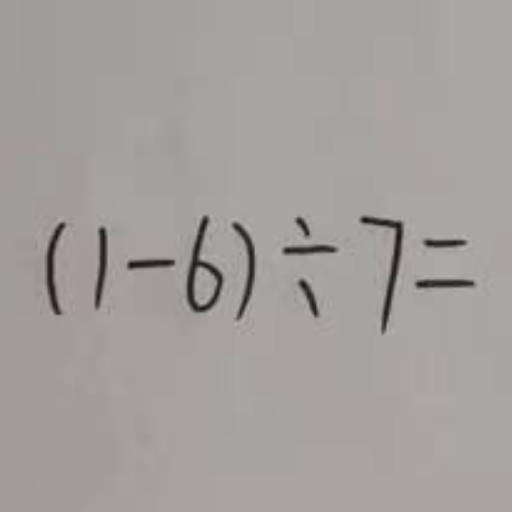 (1-6)÷7=